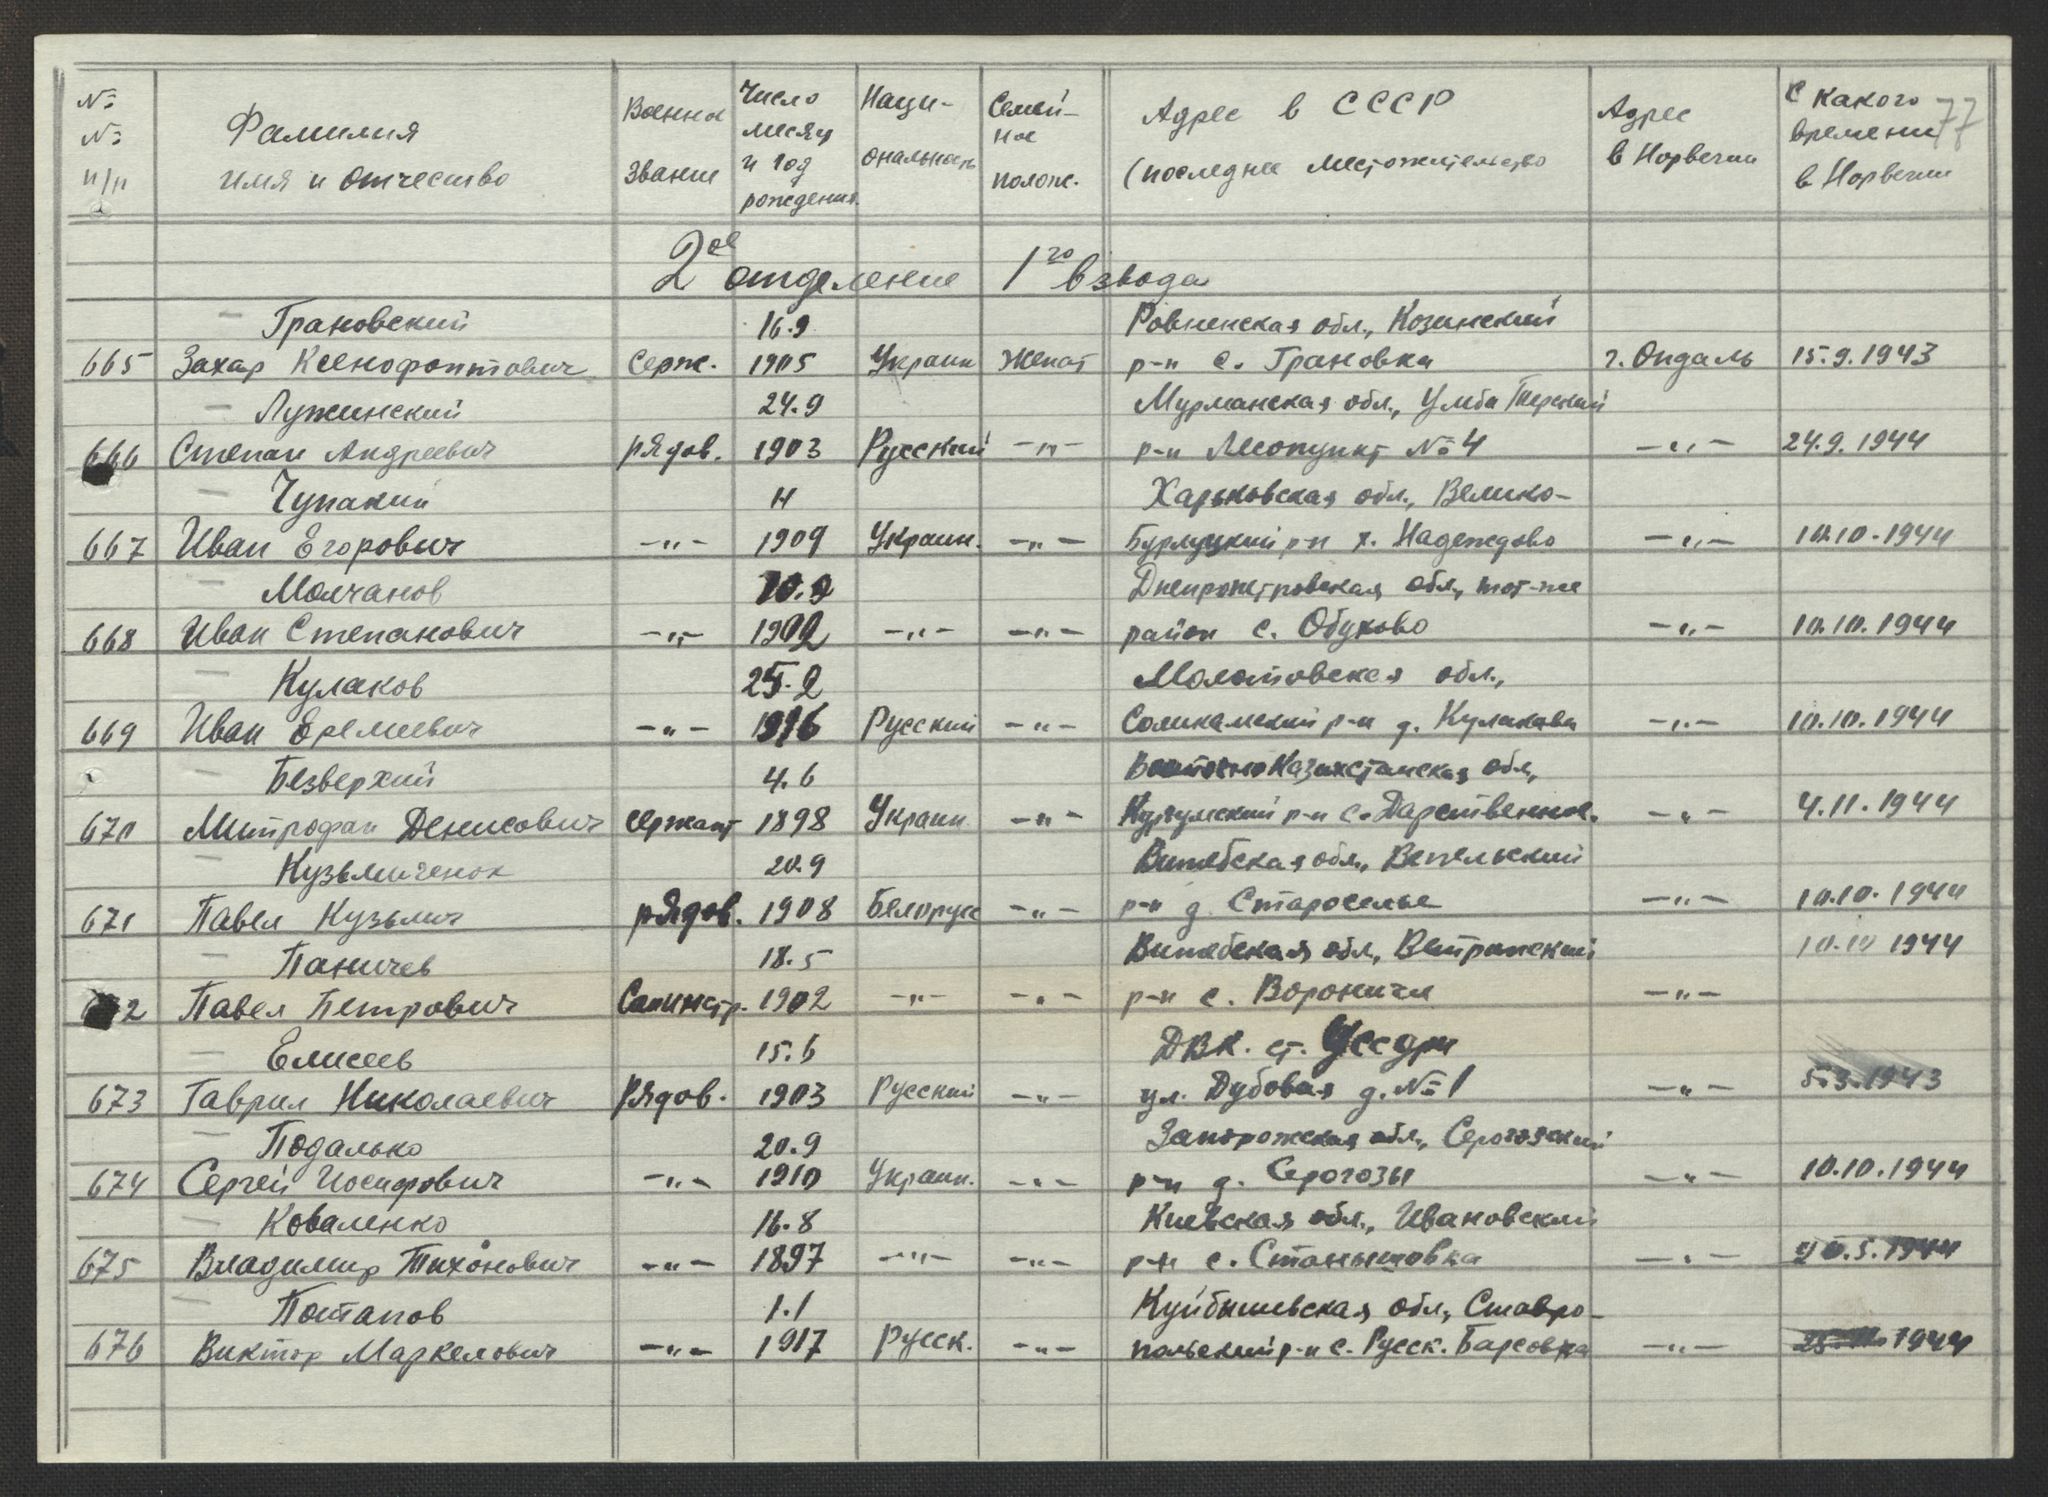 № № п/п | Фамилия имя и отчество | Военное звание | Число месяц и год рождения | Наци-ональность | Семей-ное полож. | Адрес в СССР (последнее местожительство | Адрес в Норвегии | С какого времени в Норвегии
77
2ое отделение 1го взвода
Грановский | 16.9 | Ровненская обл., Козинский
665 | Захар Ксенофонтович | Серж. | 1905 | Украин | Женат | р-н с. Грановка | г. Опдаль | 15.9.1943
Лужинский | 24.9 | Мурманская обл., Умба Терский
666 | Степан Андреевич | рядов. | 1903 | Русский | -"- | р-н Лесопункт №4 | -"- | 24.9.1944
Чупакий | 11 | Харьковская обл., Велико-
667 | Иван Егорович | -"- | 1909 | Украин. | -"- | Бурлуцкий р-н х. Надеждово | -"- | 10.10.1944
Молчанов | 10.2 | Днепропетровская обл., тот-же
668 | Иван Степанович | -"- | 1902 | -"- | -"- | район с. Обухово | -"- | 10.10.1944
Кулаков | 25.2 | Молотовская обл.,
669 | Иван Еремеевич | -"- | 1916 | Русский | -"- | Соликамский р-н д. Кулакова | -"- | 10.10.1944
Безверхий | 4.6 | Восточно Казахстанская обл,
670 | Митрофан Денисович | сержант | 1898 | Украин. | -"- | р-н с. Дарственное. | -"- | 4.11.1944
Кузьмиченок | 20.9 | Витебская обл., Вепельский
671 | Павел Кузьмич | рядов. | 1908 | Белорусс | -"- | р-н д. Староселье | -"- | 10.10.1944
Паничев | 18.5 | Витебская обл., Ветринский | 10.10 1944
672 | Павел Петрович | Санинстр. | 1902 | -"- | -"- | р-н с. Вороничи | -"-
Елисеев | 15.6 | ДВК. ст. Уссури
673 | Гаврил Николаевич | Рядов. | 1903 | Русский | -"- | ул. Дубовая д. №1 | -"- | 5.3.1943
Подалько | 20.9 | Запорожская обл., Серогозский
674 | Сергей Иосифович | -"- | 1910 | Украин. | -"- | р-н д. Серогозы | -"- | 10.10.1944
Коваленко | 16.8 | Киевская обл., Ивановский
675 | Владимир Тихонович | -"- | 1897 | -"- | -"- | р-н с. Станишовка | -"- | 5.1944
Потапов | 1.1 | Куйбышевская обл., Ставро-
676 | Виктор Маркелович | -"- | 1917 | Русск. | -"- | польский р-н с. Русск. Барсовка | -"- | 1944